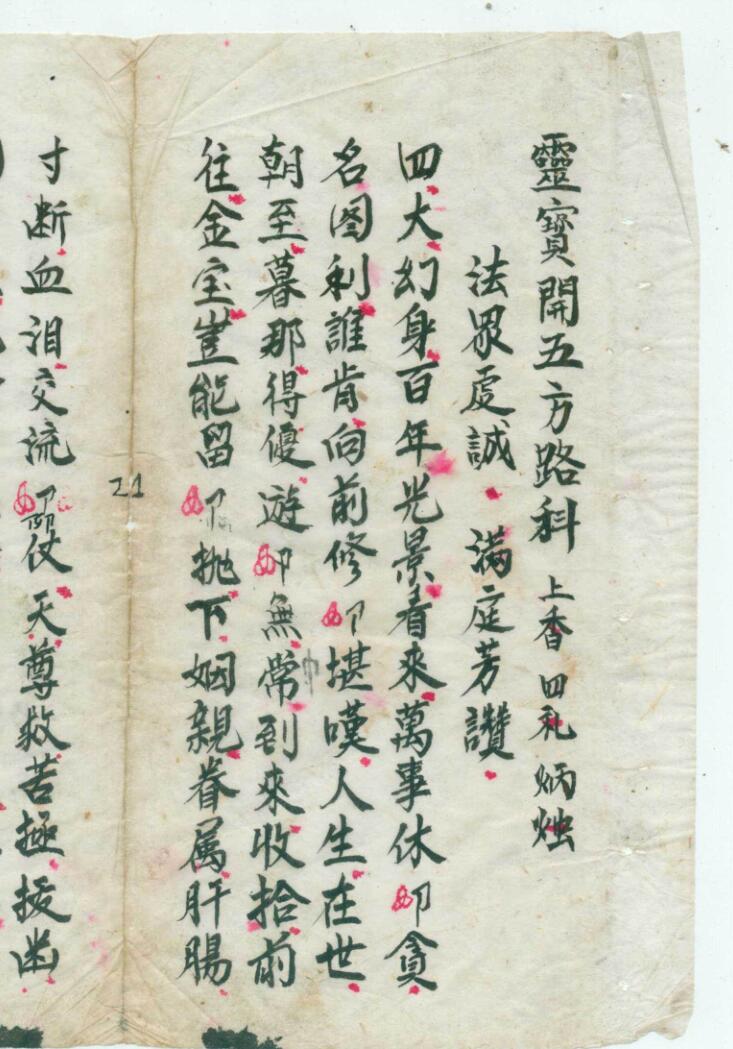 靈寶開五方路科 上香 四礼 炳烛
法眾虔誠 滿庭芳讚
四大幻身百年光景看來萬事休卬貪
名图利誰肯向前修卬堪嘆人生在世
朝至暮那得優遊卬無常到來收拾前
往金宝豈能留卬抛下姻親眷属肝腸
21
寸断血泪交流卬仗天尊救苦拯拔幽